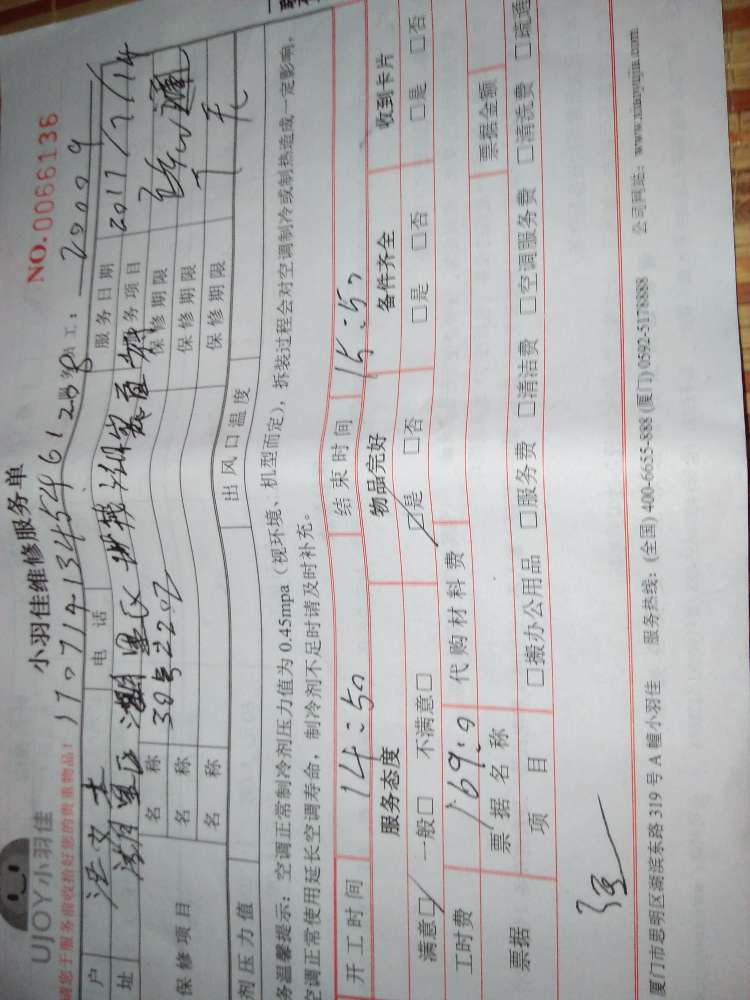 UJOY小羽佳
小羽佳维修服务单
NO.0066136
请您于服务前收拾好您的贵重物品!
户
电 话
工:
址
湖里区
服 务 日 期
2017/7/14
30号
务 项 目
保 修 项 目
名 称
保 修 期 限
名 称
保 修 期 限
名 称
保 修 期 限
剂 压 力 值
出 风 口 温 度
务温馨提示: 空调正常制冷剂压力值为 0.45mpa(视环境、机型而定),拆装过程会对空调制冷或制热造成一定影响,
空调正常使用延长空调寿命,制冷剂不足时请及时补充。
开 工 时 间
14:50
结 束 时 间
15:50
服务态度
物品完好
备件齐全
收到卡片
满意□ 一般□ 不满意□
□是 □否
□是 □否
□是 □否
工时费
代 购 材 料 费
票据
票 据 名 称
票据金额
项 目
□搬办公用品 □服务费 □清洁费 □空调服务费 □清洗费 □疏通
厦门市思明区湖滨东路 319 号 A 幢小羽佳 服务热线: (全国) 400-6655-888 (厦门) 0592-5178888 公司网址: www.xiaoyujia.com